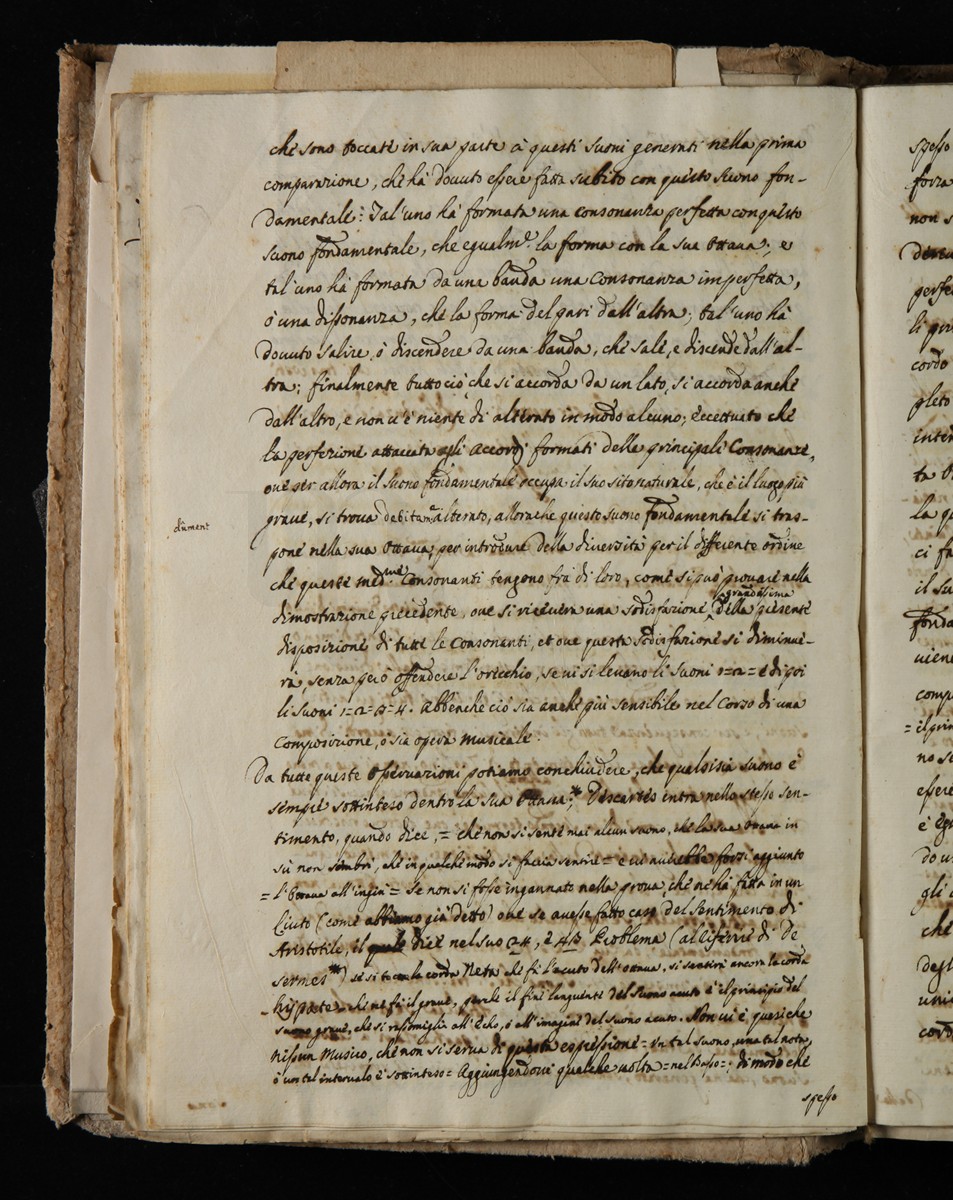 che sono toccate in sua parte à questi suoni generati nella prima
comparazione, che hà dovuto essere fatta subito con questo suono fon-
damentale: Tal'uno hà formata una consonanza perfetta con questo
suono fondamentale, che egualm.e la forma con la sua ottava; e
tal'uno hà formata da una banda una Consonanza imperfetta,
ò una dissonanza, che la forma del pari dall'altra; tal'uno hà
dovuto salire, ò discendere da una banda, che sale, e discende dall'al-
tra; finalmente tutto ciò che si accorda da un lato, si accorda anche
dall'altro, e non v'è niente di alterato in modo alcuno; eccettuato che
la perfezione attaccata agli accordi formati delle principali Consonanze,
ove per allora il suono fondamentale occupa il suo sito naturale, che è il luogo più
grave, si trova debitam.e alterato, allorache questo suono fondamentale si tras-
pone nella sua Ottava, per introdure della diversità per il differente ordine
che queste med.me Consonanti tengono frà di loro, come si può provare nella
grandissima
dimostrazione precedente, ove si riceverà una sodisfazione della presente
disposizione di tutte le Consonanti, et ove questa sodisfazione si diminue-
rà, senza però offendere l'orecchio, se vi si levano li suoni 1=2= e di poi
li suoni 1=2=3=4. Abbenche ciò sia anche più sensibile nel Corso di una
Composizione, ò sia opera Musicale.
Da tutte queste osservazioni potiamo conchiudere, che qualsisia suono è
sempre sottinteso dentro la sua Ottava; Descartes intra nello stesso sen-
timento, quando dice, = che non si sente mai alcun suono, che la sua ottava in
sù non sembri, che in qualche modo si faccia sentire = e vi avrebbe forsi aggiunto
= l'ottava all'ingiù = se non si fosse ingannato nella prova che ne hà fatta in un
Liuto (come abbiamo già detto) ove se avesse fatto caso del sentimento di
Aristotile, il quale dice nel suo 24, e 43 Problema (al riferire di De
sermes) se si tocca la corda Neta che fà l'acuto dell'ottava, si sentirà ancora la corda
Hispate, che ne fà il grave, perche il fine languente del suono acuto è il principio del
suono grave, che si rassomiglia all'Echo, ò all'imagine del suono acuto. Non vi è quasi che
nissun Musico, che non si serva di questa espressione = un tal suono, una tal nota,
ò un tal intervalo è sottinteso = Aggiungendovi qualche volta = nel Basso =. di modo che
spesso